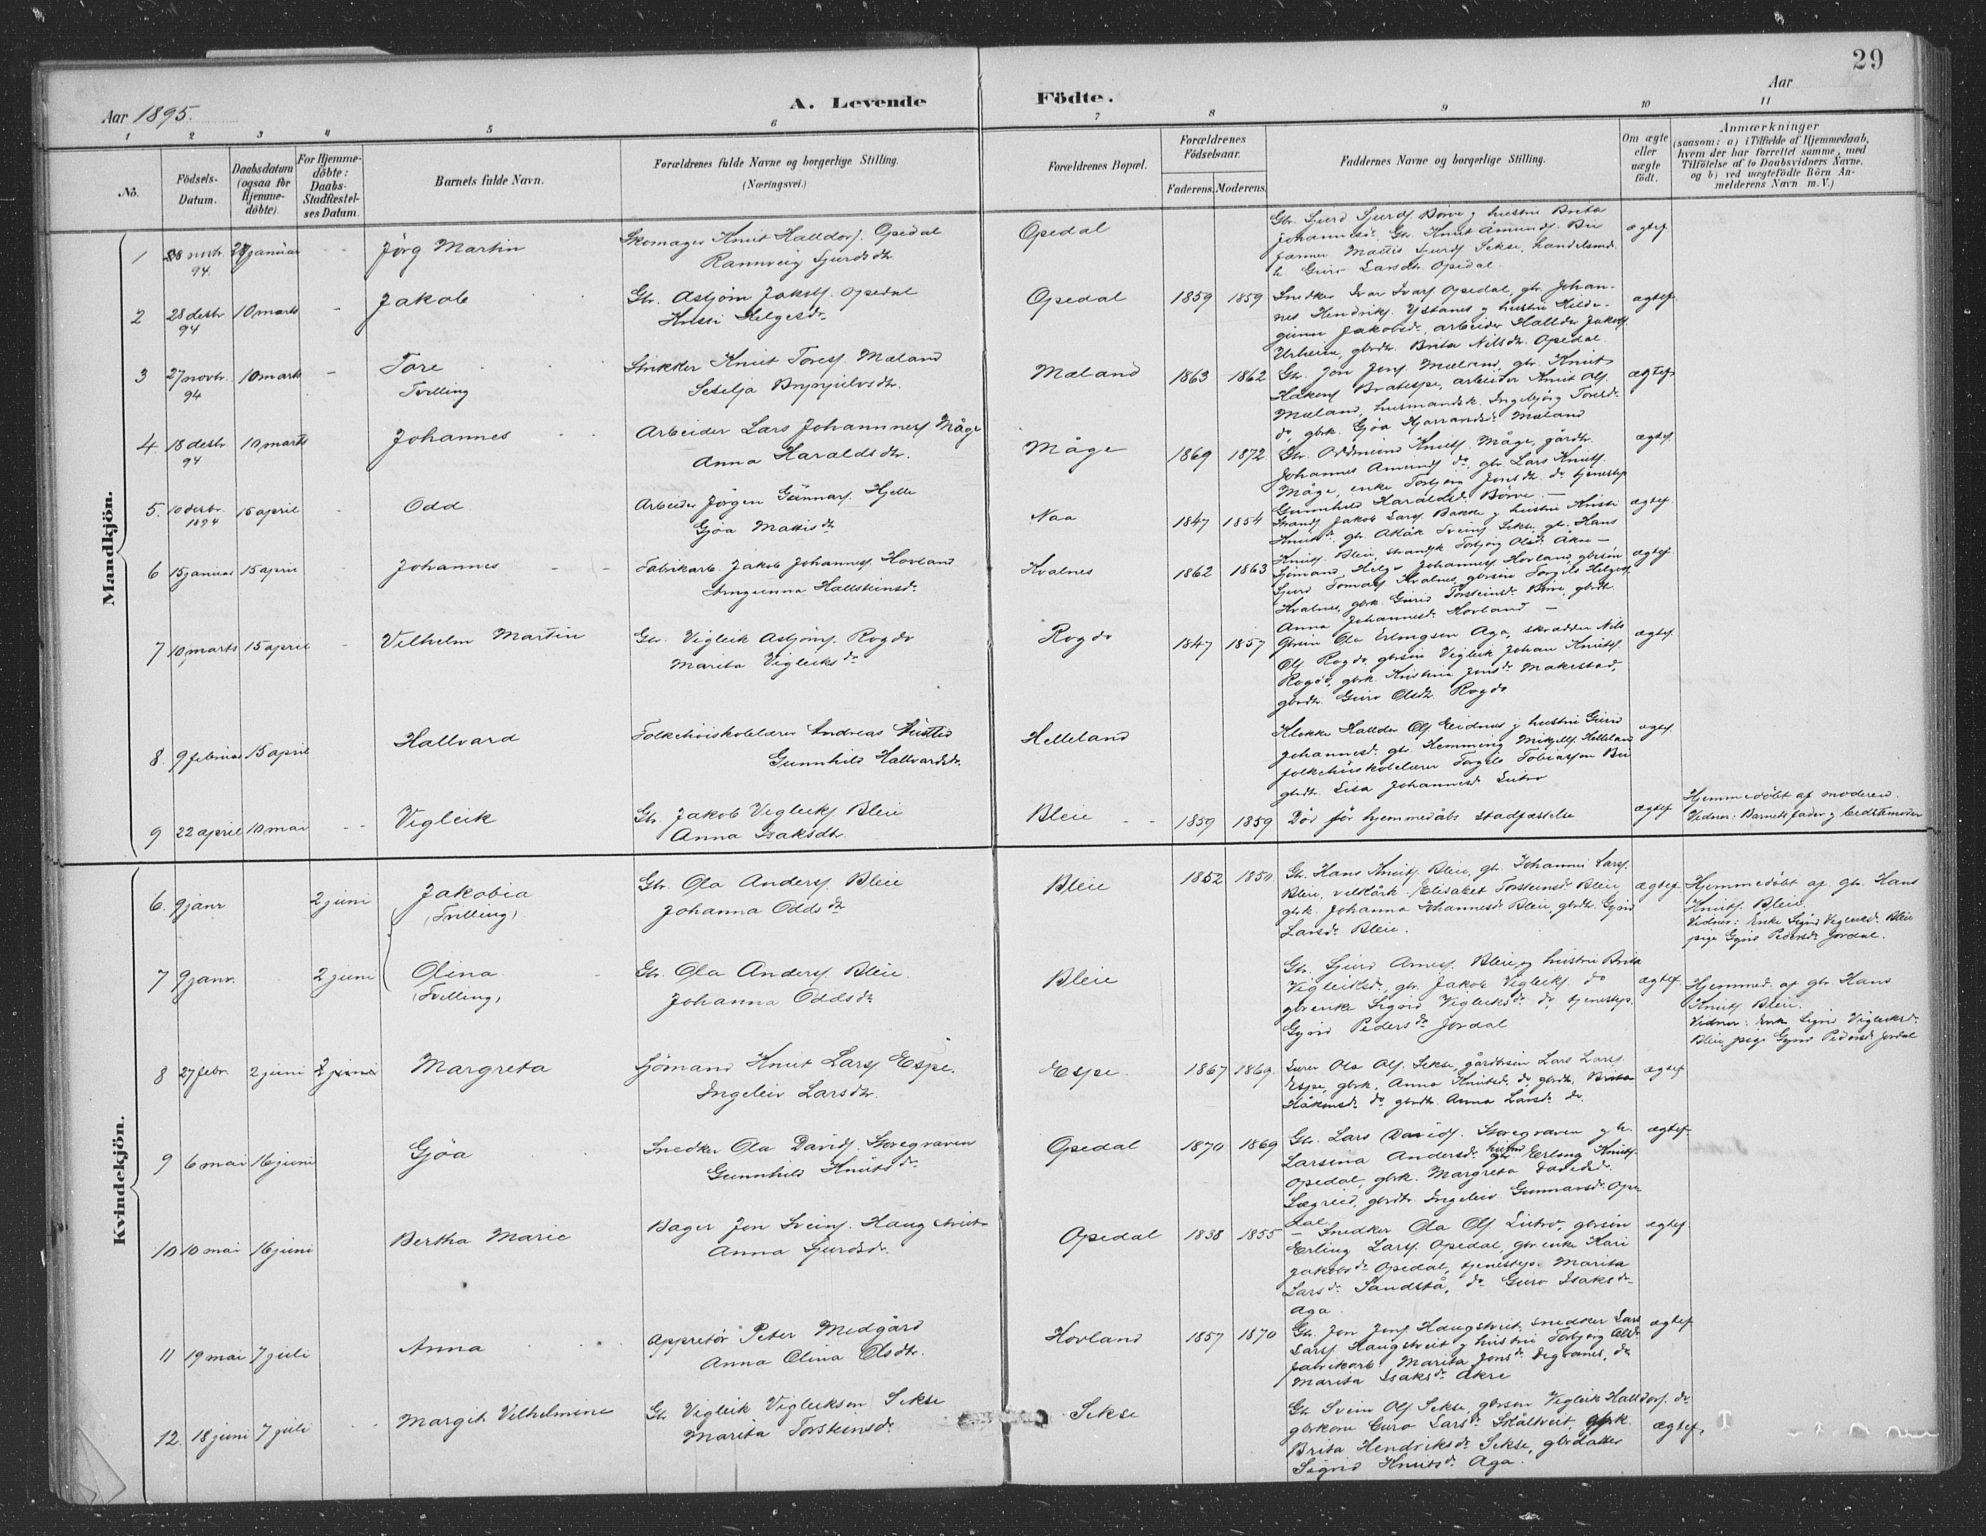 29
Aar 1895.
A. Levende Födte.
Aar
1 2 3 4 5 6 7 8 9 10 11
No.
Födsels-Datum.
Daabsdatum (ogsaa for Hjemme-döbte).
For Hjemme-döbte: Daabs-Stadfæstel-ses Datum.
Barnets fulde Navn.
Forældrenes fulde Navne og borgerlige Stilling.
(Næringsvei.)
Forældrenes Bopæl.
Forældrenes Födselsaar.
Faderens. Moderens.
Faddernes Navne og borgerlige Stilling.
Om ægte eller uægte födt.
Anmærkninger
(saasom: a) i Tilfælde af Hjemmedaab,
hvem der har forrettet samme, med
Tilföielse af to Daabsvidners Navne.
og b) ved uægtefödte Börn An-
melderens Navn m. V.)
Mandkjön.
1 novbr. 94 januar Jörg Martin
Skomager Knut Halldorf. Opedal
Rannveig Sjurdsdtr
Opedal
Gbr. Sjurd Sjurdf. Börve og hustru Brita
Johannesdr. Gbr. Knut Amundf. Bu
Mattis Sjurdf. Sekse, handelsmd.
Guro Larsdtr Opedal.
ægtef.
2 28 desbr 94 10 marts Jakob
Gbr. Asbjörn Jakobf. Opedal
Helgesdr.
Opedal 1859 1859
Snedker Ivar Ivarf Opedal, gbr. Johan-
nes Hendrikf. Ystanes og hustru Hilde-
gunn Jakobsdr, arbeider Halldor Jakobf.
Urheim, gbrdtr. Brita Nilsdtr. Opedal.
ægtef.
3 27 novbr. 94 10 marts Tore
Tvilling
Knut Toresf. Mæland
Seselja Brynjulvsdtr.
Mæland 1863 1862
Gbr. Jon Jonf Mæland, gbr. Knut
Håkonf Bratespe, arbeider Knut Olf
Mæland, husmandsk. Ingebjörg Toresdr.
do, gbrk. Gjøa Mæland
ægtef.
4 18 desbr 94 10 marts Johannes
Arbeider Lars Johannesf Måge
Anna Haraldsdtr.
Måge 1869 1872
Gbr. Oddmund Knutf. Måge, gårdbr.
Johannes Amundf do, gbr Lars Knutf.
Måge, enke Torbjör Jonsdtr. do tjenestep
Gunnhild Haraldsdr. Börve. —
ægtef.
5. 10 desbr. 1894 15 april Odd
Arbeider Jörgen Gunnarf. Hjelle
Gjøa Mattisdtr
Naa 1847 1854
Strands. Jakob Larsf. Bakke og hustru Kristi
Knutsdr. gbr. Aslak Sveinf Sekse, gbr. Hans
Knutf. Bleie, strandsk Torbjörg Olsdr. Akre —
ægtef.
6 15 januar 15 april Johannes
Fabrikarb. Jakob Johannesf. Hovland
Arngunna Hallsteinsdr.
Kvalnes 1862 1863
Sjömand Helge Johannesf Hovland, gbrsön
Sjurd Tomasf Kvalnes, gbrsön Torgils Helgesf.
Kvalnes, gbrk. Gurid Torsteinsdr. Börve, gbrdtr.
Anna Johannesdr. Hovland —
ægtef.
7 10 marts 15 april Vilhelm Martin
Gbr. Vigleik Asbjörnf. Rogdo
Marita Vigleiksdr
Rogdo 1847 1857
Gbrsön Ola Erlingsen Aga, skrædder Nils
Olf Rogdo, gbrsön Vigleik Johan Knutf.
Rogdo, gbrk. Kristina Jonsdr. Makestad,
gbrdtr Guro Olsdtr. Rogdo
ægtef.
8. 9 februar 15 april Hallvard
Folkehöiskolelærer Andreas
Gunnhild Hallvardsdr.
Helleland
Klokker Halldor Olf Eidnes og hustru Gurid
Johannesdr. gbr. Hemming Mikjelf. Helleland
folkehöiskolelærer Torgils Tobiassen Bu
gbrdtr. Lisa Johannesdr Lutro
ægtef.
9 22 april 10 mai Vigleik
Gbr. Jakob Vigleikf Bleie
Anna Isaksdtr.
Bleie 1859 1859
Död för hjemmedåbs stadfæstelse
ægtef.
Hjemmedöbt af moderen.
Vidner: Barnets fader og bedstemoder
Kvindekjön.
6. 9 janr 2 juni Jakobia
(Tvilling)
Gbr. Ola Andersf Bleie
Johanna Oddsdtr
Bleie 1852 1850
Gbr. Hans Knutf. Bleie, gbr. Johannes Larsf.
Bleie, Elisabet Torsteinsdr Bleie,
gbrk. Johanna Johannesdr. Bleie, gbrdtr. Gyrid
Larsdr. Bleie.
ægtef.
Hjemmedöbt af gbr. Hans
Knutf. Bleie.
Vidner: Enke Sigrid Vigleiksdr. Bleie
pige Gyrid Pedersdr Jordal.
7 9 janr. 2 juni Olina
(Tvilling)
Gbr. Ola Andersf Bleie.
Johanna Oddsdtr
Bleie
Gbr. Sjurd Arnef. Bleie, og hustru Brita
Vigleiksdr., gbr. Jakob Vigleikf. do
gbrenke Sigrid Vigleiksdr do, tjenestep.
Gyrid Pedersdr Jordal
ægtef.
Hjemmed. af gbr. Hans
Knutf Bleie.
Vidner: Enke Sigrid Vigleiksdr.
Bleie, pige Gyrid Pedersdr Jordal
8 27 febr. 2 juni 2 juni Margreta
Sjömand Knut Larsf Espe.
Ingeleiv Larsdtr.
Espe. 1867 1869
Lærer Ola Olf. Sekse, gårdbrsön Lars Larsf.
Espe, gbrk. Anna Knutsdr. do, gbrdtr. Brita
Håkonsdr. do gbrdtr. Anna Larsdr do.
ægtef.
9 6 mai 16 juni Gjøa
Snedker Ola Davidf. Storegraven
Gunnhild Knutsdr.
Opedal 1870 1869
Gbr. Lars Davidf. Storegraven og h.
Larsina Andersdr. Erling Knutf.
Opedal, gbrk. Margreta Davidsdr.
Lægreid, gbrdtr. Ingeleiv Gunnarsdr. Ope
dal.
ægtef.
10 10 mai 16 juni Bertha Marie
Bager Jon Sveinf. Haugstveit
Anna Sjurdsdr.
Opedal 1838 1855
— Snedker Ola Olf Lutro, gbrsön
Erling Larsf. Opedal, gbr. enke Kari
Jakobsdr Opedal, tjenestep. Marita
Larsdr. Sandstå, do Guro Isaksdr.
Aga.
ægtef.
11 19 mai 7 juli Anna
Appretör Peter Midgård
Anna Olina Olsdtr.
Hovland 1857 1870
Gbr. Jon Jonf Haugstveit, snedker Lars
Larsf. Haugstveit og hustru Torbjörg Olsdr
fabrikarb. Marita Jonsdr Digranes, do
Marita Isaksdr Akre
ægtef
12. 18 juni 7 juli Margit Vilhelmine
Gbr Vigleik Vigleiksen Sekse
Marita Torsteinsdr.
Sekse
Gbr Svein Olf Sekse, gbrsön Vigleik Halldorf. do
gbrkone Guro Larsdr Skåltveit, gbrk.
Brita Hendriksdr. Sekse, gbrdatter
Sigrid Knutsdr. Aga.
ægtef.